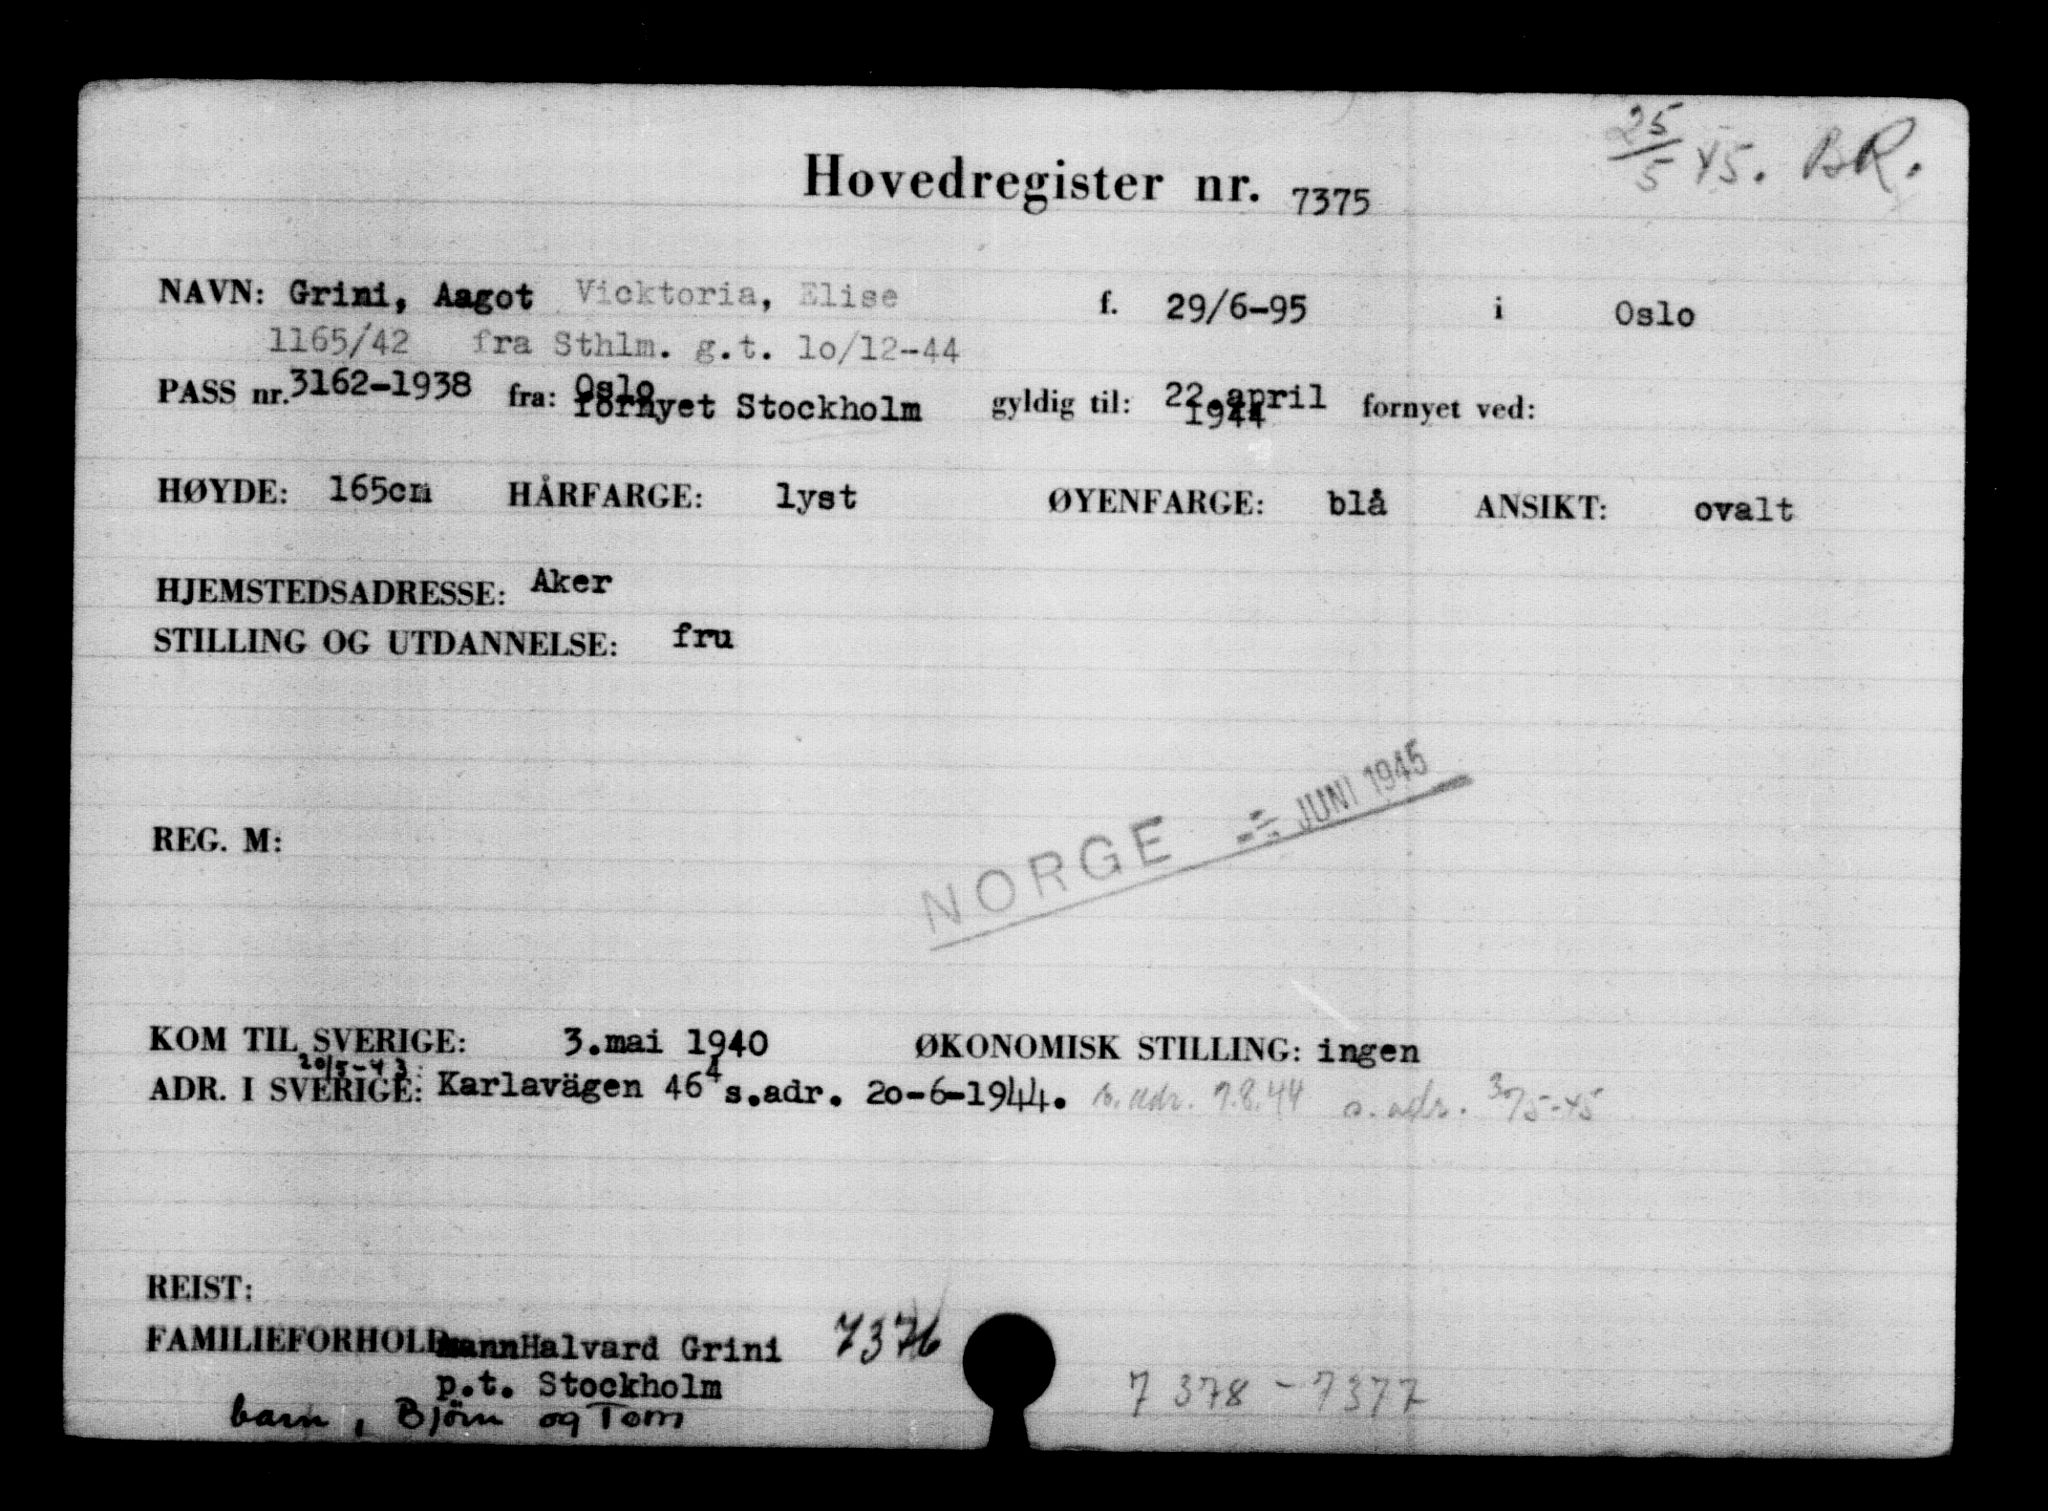 25/5 45. BR.
Hovedregister nr. 7375
NAVN: Grini, Aagot Vicktoria, Elise f. 29/6-95 i Oslo
1165/42 fra Sthlm. g.t. 1o/12-44
PASS nr. 3162-1938 fra: Oslo gyldig til: 22.april fornyet ved:
fornyet Stockholm 1944
HØYDE: 165cm HÅRFARGE: lyst ØYENFARGE: blå ANSIKT: ovalt
HJEMSTEDSADRESSE: Aker
STILLING OG UTDANNELSE: fru
NORGE JUNI 1945
REG. M:
KOM TIL SVERIGE: 3.mai 1940 ØKONOMISK STILLING: ingen
20/5-43
ADR. I SVERIGE: Karlavägen 46⁴ s.adr. 2o-6-1944. s. adr. 7.8.44 s. adr. 3/5-45
REIST:
FAMILIEFORHOLD mannHalvard Grini 7376
p.t. Stockholm
barn, Björn og Tom 7378-7377